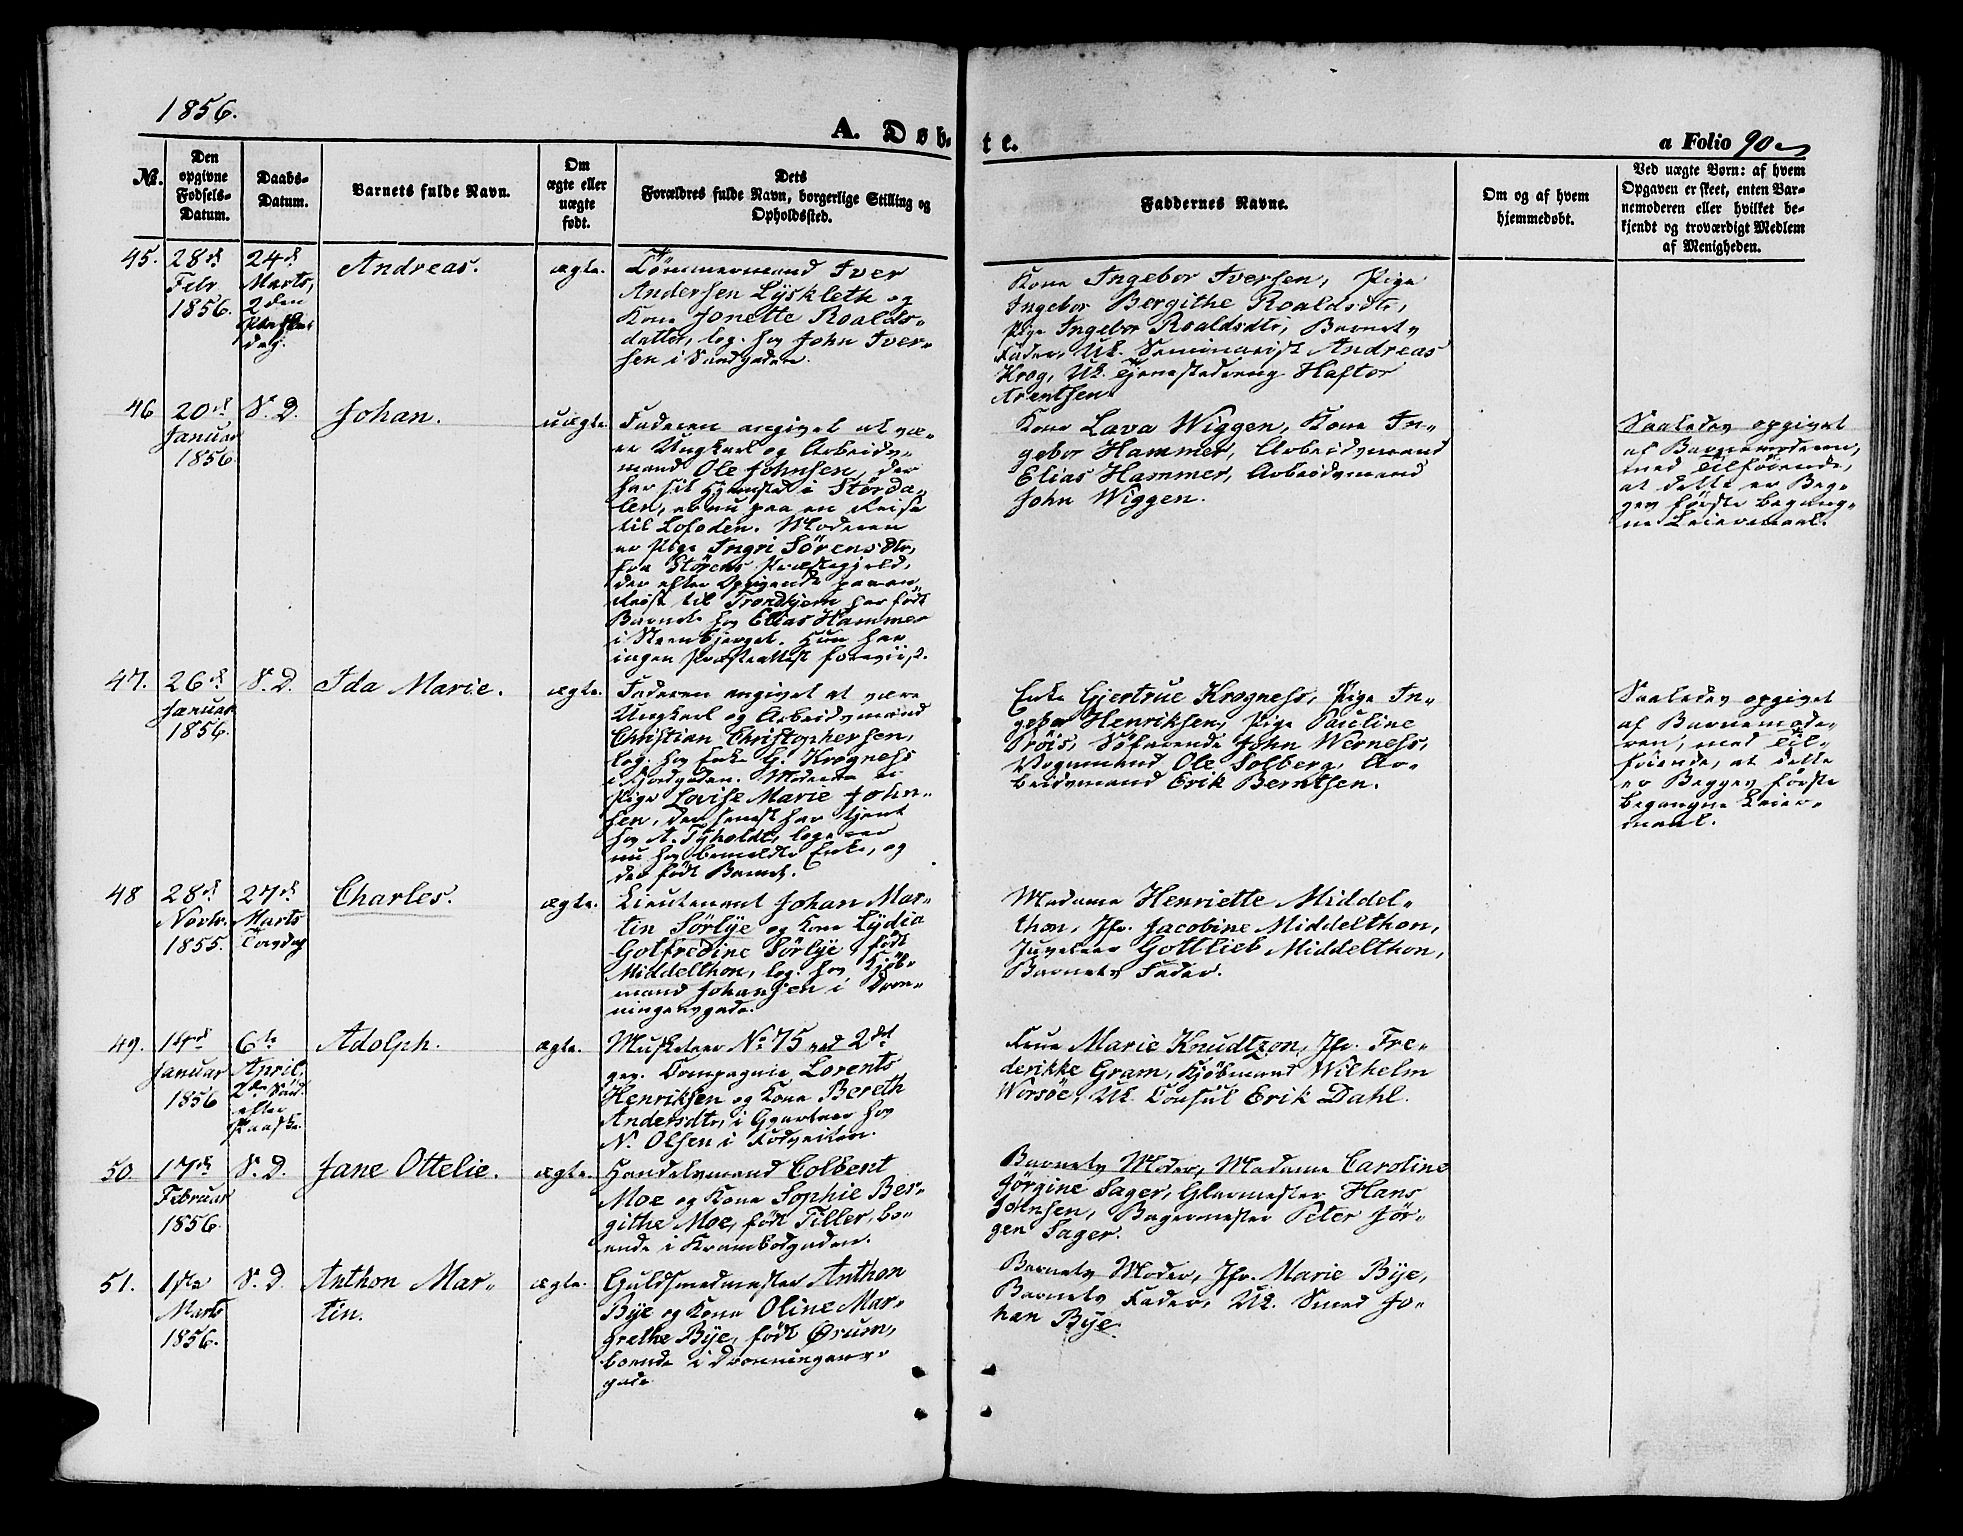 1856.
A. Døb-
te.
a Folio 90
No.
Den
opgivne
Fødsels-
Datum.
Daabs-
Datum.
Barnets fulde Navn.
Om
ægte eller
uægte
født.
Dets
Forældres fulde Navn, borgerlige Stilling og
Opholdssted.
Faddernes Navne.
Om og af hvem
hjemmedøbt.
Ved uægte Børn: af hvem
Opgaven er skeet, enten Bar-
nemoderen eller hvilket be-
kjendt og troværdigt Medlem
af Menigheden.
45.
28de
Febr
1856.
24de
Marts,
2den
Paaske
dag.
Andreas.
ægte.
Tømmermand Iver
Andersen Lÿskleth og
Kone Jonette Roalds-
datter, log. hos John Iver-
sen i Sandgaden.
Kone Ingebor Iversen, Pige
Ingebor Bergithe Roaldsdtr,
Pige Ingebor Roaldsdtr, Barnets
Fader, Uk. Seminarist Andreas
Krog, Uk. Tjenestedreng Haftor
Arentsen.
46
20de
Januar
1856.
S. D.
Johan.
uægte.
Faderen angivet at væ-
re Ungkarl og Arbeids-
mand Ole Johnsen, der
har sit Hjemsted i Størda-
len, er nu paa en Reise
til Lofoden. Moderen
er Pige Ingri Sörensdtr,
fra Störens Præstegjeld,
der efter Opgivende paa en
Reise til Trondhjem har født
Barnet hos Elias Hammer
i Steenbjerget. Hun har
ingen Præsteattest foreviist.
Kone Lava Wiggen, Kone In-
gebor Hammer, Arbeidsmand
Elias Hammer, Arbeidsmand
John Wiggen.
Saaledes opgivet
af Barnemoderen,
med Tilføiende,
at dette er Beg-
ges første begang-
ne Leiermaal.
47.
26de
Januar
1856.
S. D.
Ida Marie.
ægte.
Faderen angivet at være
Ungkarl og Arbeidsmand
Christian Christophersen,
log. hos Enke G. Krogness
i Fjordgaden. Moderen er
Pige Lovise Marie John-
sen, der senest har tjent
hos A. Tÿholdt, logerer
nu hos bemeldte Enke, og
der født Barnet.
Enke Gjertrue Krogness, Pige In-
gebor Henriksen, Pige Pauline
Pröis, Söfarende John Werness,
Vognmand Ole Solberg, Ar-
beidsmand Erik Berntsen.
Saaledes opgivet
af Barnemode-
ren, med Til-
føiende, at dette
er Begges første
begangne Leier-
maal.
48
28de
Novbr.
1855.
27de
Marts
Torsdag
Charles.
ægte.
Lieutenant Johan Mar-
tin Sörlÿe og Kone Lÿdia
Gotfredine Sörlÿe, født
Middelthon, log. hos Kjøb-
mand Johansen i Dron-
ningensgade.
Madame Henriette Middel-
thon, Jfr. Jacobine Middelthon,
Juveleer Gottlieb Middelthon,
Barnets Fader.
49.
14de
Januar
1856
6te
April.
2den Sønd.
efter
Paaske.
Adolph.
ægte.
Musketeer No 75 ved 2det
gev. Compagnie Lorents
Henriksen og Kone Bereth
Andersdtr, i Qvarteer hos
N. Olsen i Fodveiten.
Frue Marie Knudtzon, Jfr. Fre-
derikke Gram, Kjøbmand Wilhelm
Worsöe, Uk. Consul Erik Dahl.
50.
17de
Februar
1856.
S. D.
Jane Ottelie.
ægte.
Handelsmand Colbent
Moe og Kone Sophie Ber-
githe Moe, født Tiller, bo-
ende i Krambodgaden.
Barnets Moder, Madame Caroline
Jörgine Sager, Glarmester Hans
Johnsen, Bagermester Peter Jör-
gen Sager.
51.
1ste
Marts
1856.
S. D.
Anthon Mar-
tin.
ægte.
Guldsmedmester Anthon
Bÿe og Kone Oline Mar-
grethe Bÿe, født Ørum,
boende i Dronningens-
gade.
Barnets Moder, Jfr. Marie Bÿe,
Barnets Fader, Uk. Smed Jo-
han Bÿe.